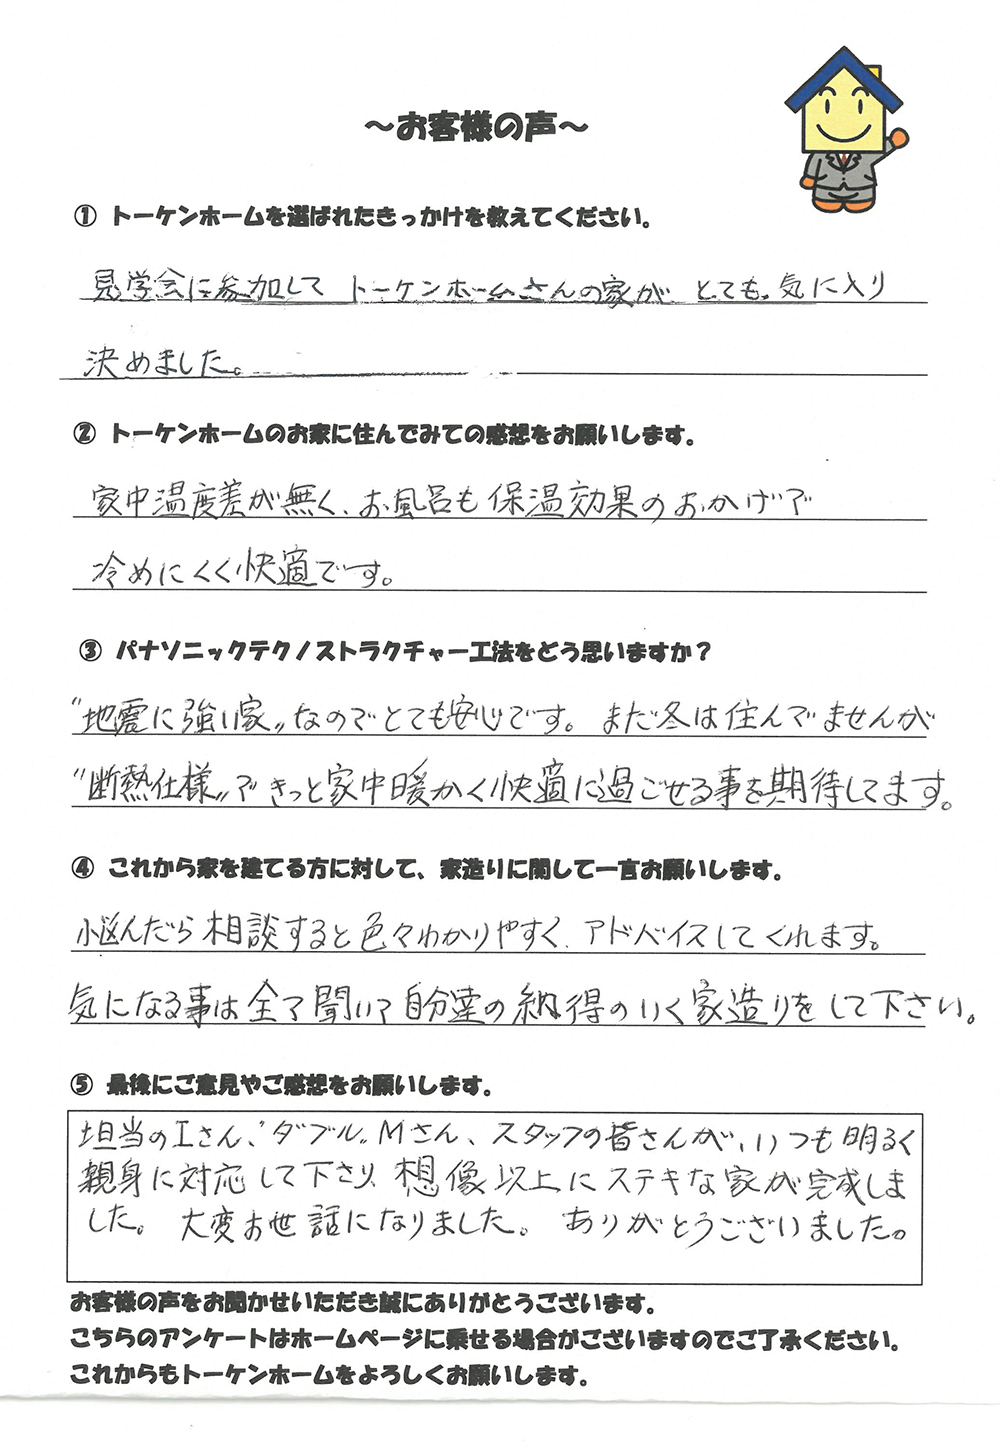 ～お客様の声～
① トーケンホームを選ばれたきっかけを教えてください。
見学会に参加して トーケンホームさんの家が とても気に入り
決めました。
② トーケンホームのお家に住んでみての感想をお願いします。
家中温度差が無く、お風呂も保温効果のおかげで
冷めにくく快適です。
③ パナソニックテクノストラクチャー工法をどう思いますか？
“地震に強い家”なのでとても安心です。まだ冬は住んでませんが
“断熱仕様”できっと家中暖かく快適に過ごせる事を期待してます。
④ これから家を建てる方に対して、家造りに関して一言お願いします。
悩んだら相談すると色々わかりやすく、アドバイスしてくれます。
気になる事は全て聞いて自分達の納得のいく家造りをして下さい。
⑤ 最後にご意見やご感想をお願いします。
担当のIさん、“ダブル”Mさん、スタッフの皆さんが、いつも明るく
親身に対応して下さり、想像以上にステキな家が完成しま
した。 大変お世話になりました。 ありがとうございました。
お客様の声をお聞かせいただき誠にありがとうございます。
こちらのアンケートはホームページに乗せる場合がございますのでご了承ください。
これからもトーケンホームをよろしくお願いします。